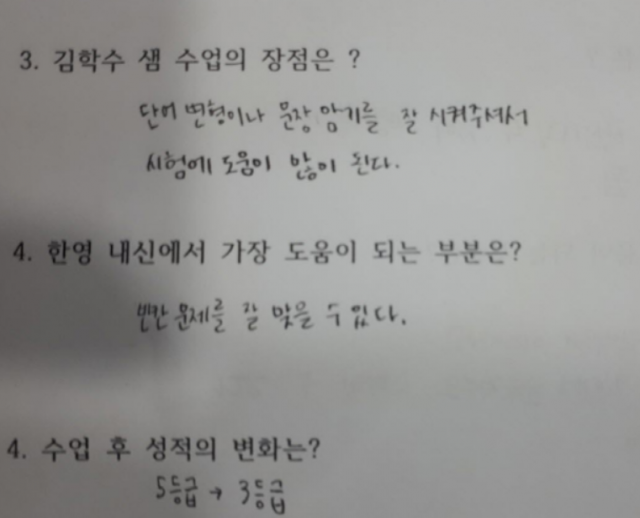 3. 김학수 샘 수업의 장점은 ?
단어 변형이나 문장 암기를 잘 시켜주셔서
시험에 도움이 많이 된다.
4. 한영 내신에서 가장 도움이 되는 부분은?
빈칸 문제를 잘 맞을 수 있다.
4. 수업 후 성적의 변화는?
5등급 → 3등급